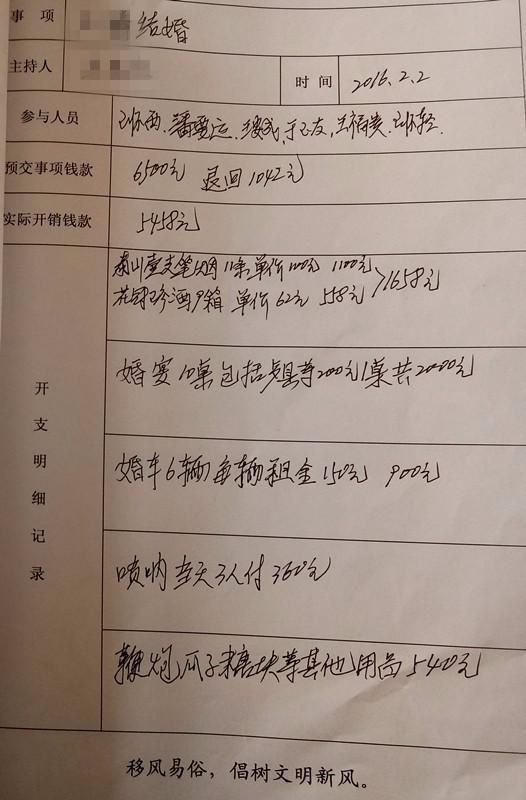 事 项 结婚
主持人 时 间 2016.2.2
参与人员
预交事项钱款 6500元 退回1042元
实际开销钱款 5458元
泰山 烟 11条 单价100元 1100元
酒9箱 单价62元 558元 >1658元
开支明细记录
婚宴10桌包括 等200元1桌共2000元
婚车6辆每辆租金150元 900元
唢呐 3人付360元
鞭炮瓜子糖块等其他用品540元
移风易俗，倡树文明新风。